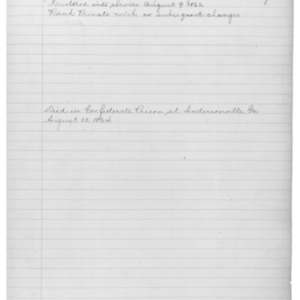 Enrolled into service August 9 1862
Rank Private with no subsequent changes
Died in Confederate Prison at Andersonville Ga
August 13 1864